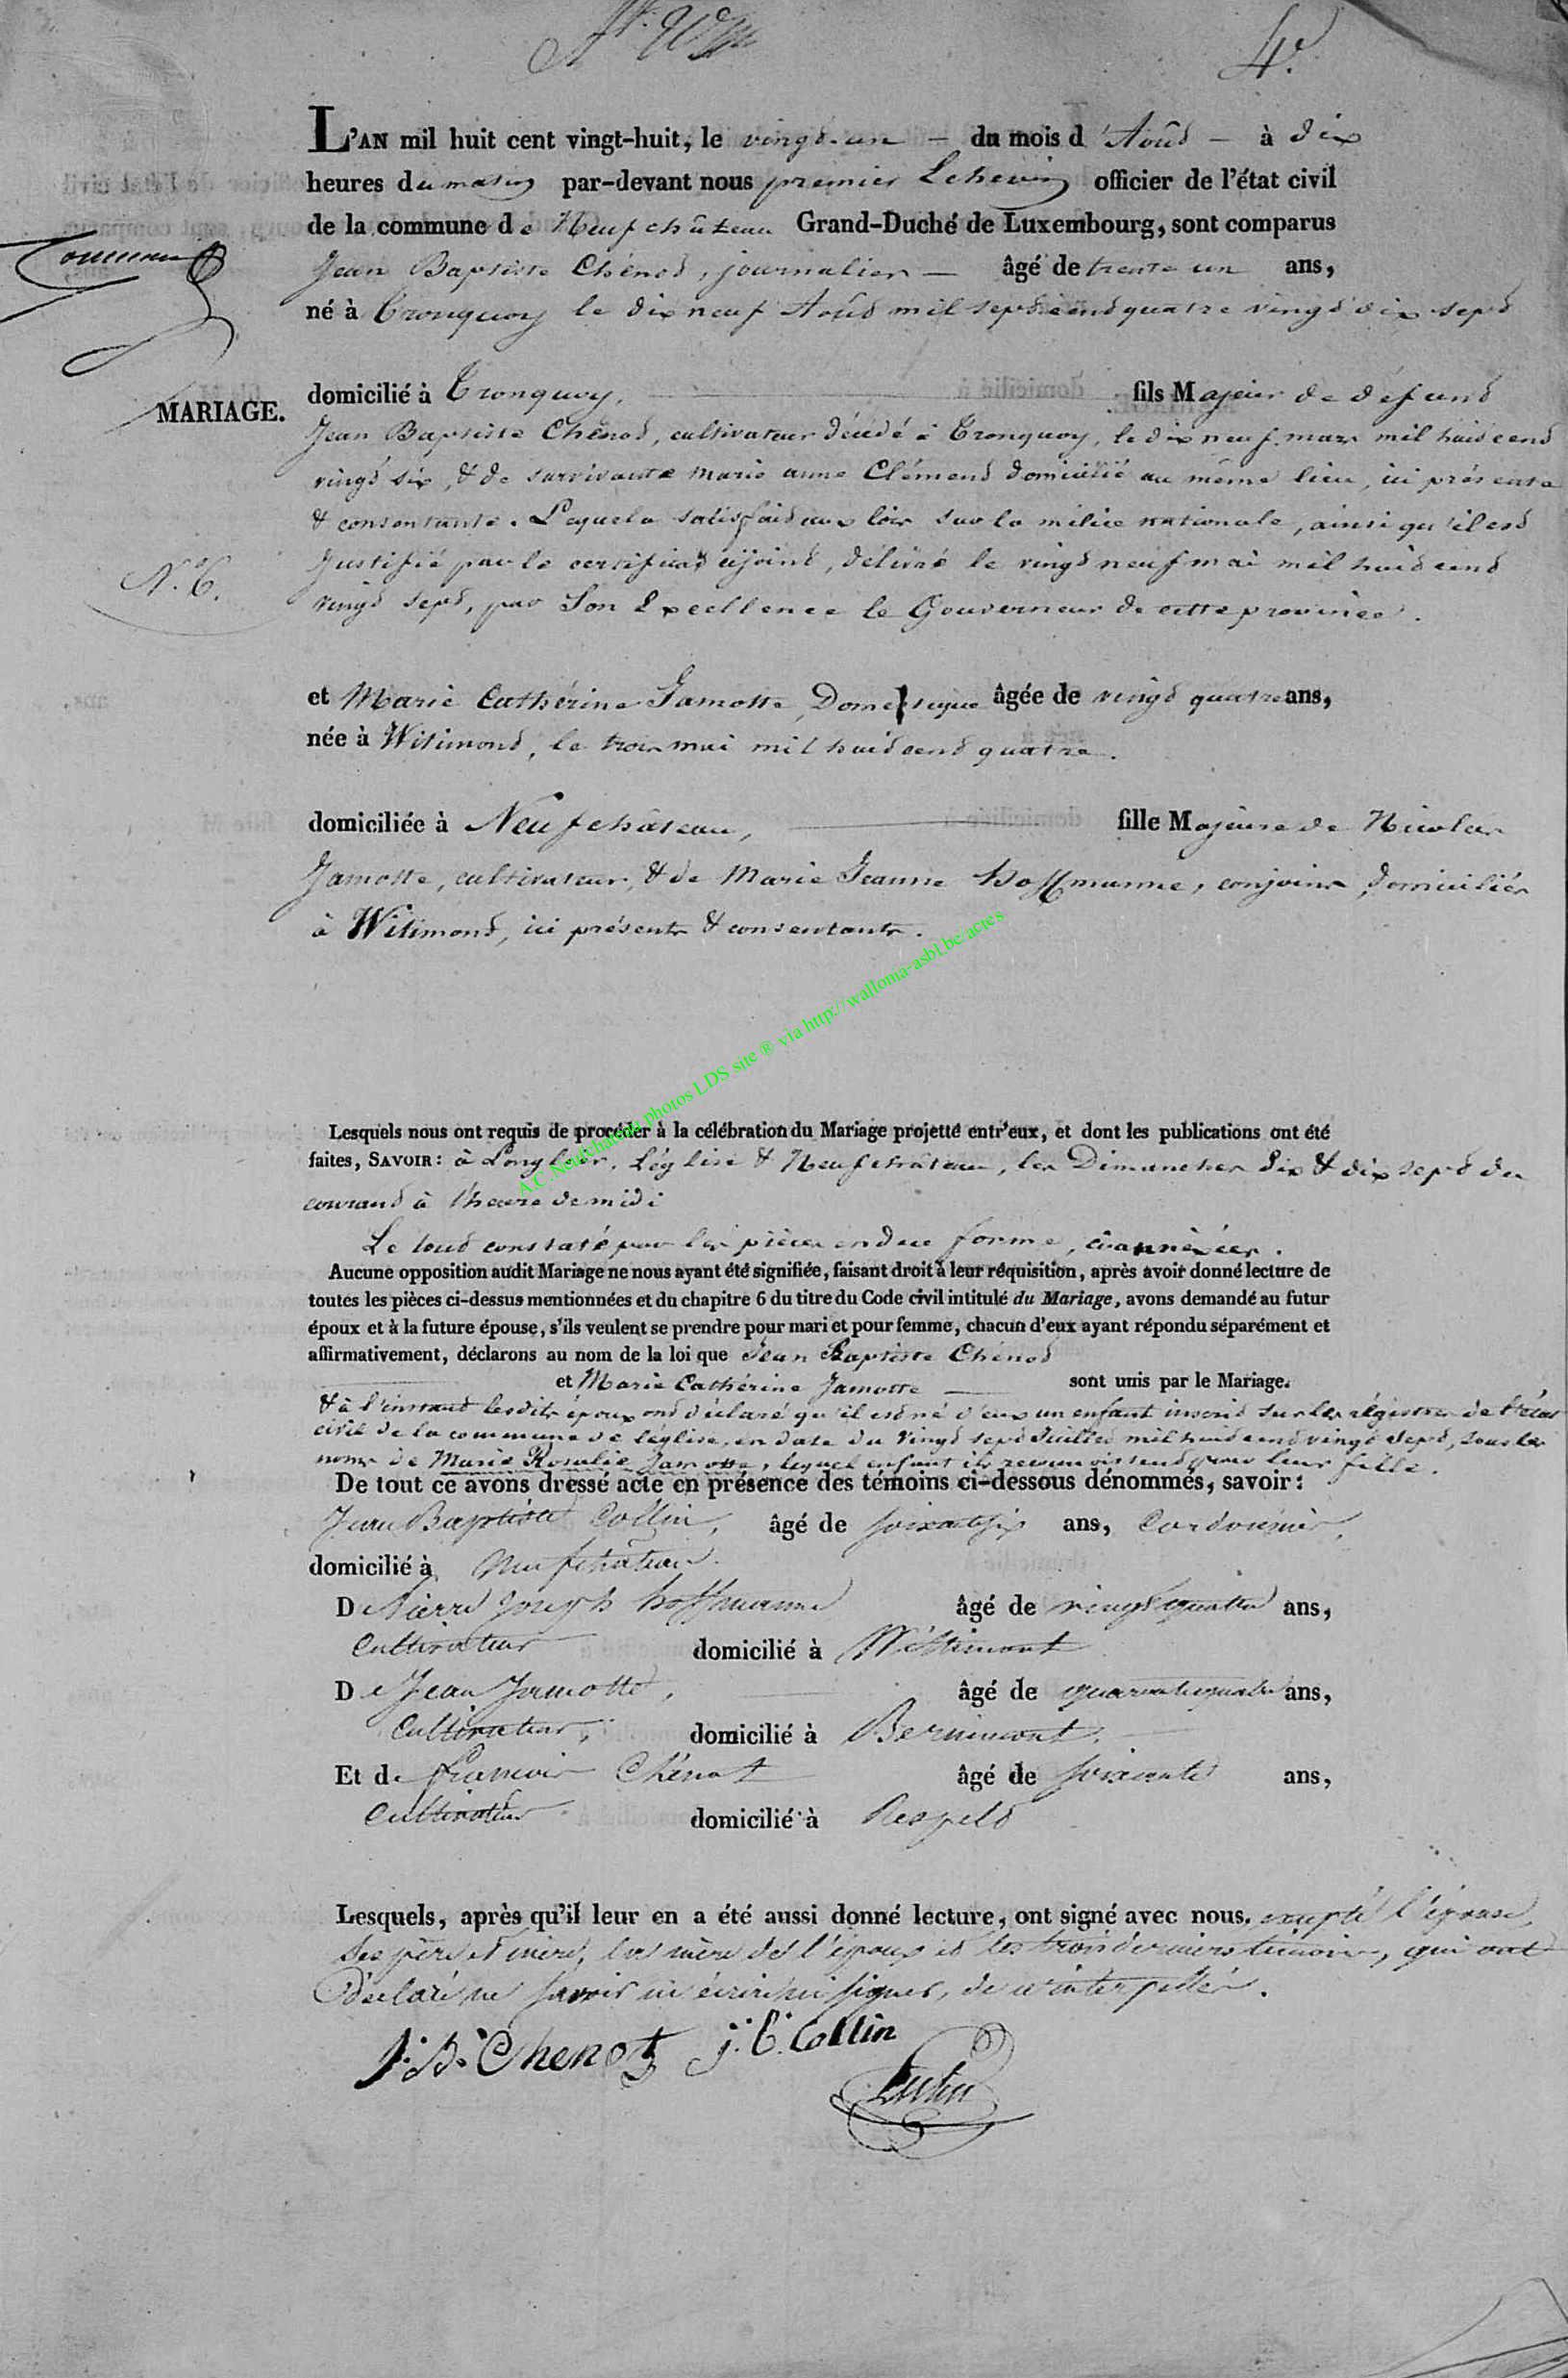 4e.
L'AN mil huit cent vingt-huit, le vingt-un – du mois d'Août – à dix
heures du matin par-devant nous premier Echevin officier de l'état civil
de la commune de Neufchâteau Grand-Duché de Luxembourg, sont comparus
Jean Baptiste Chénot, journalier — âgé de trente un ans,
né à Tronquoy le dix neuf Août mil sept cent quatre vingt dix sept
domicilié à Tronquoy, fils Majeur de défunt
MARIAGE.
Jean Baptiste Chénot, cultivateur décédé à Tronquoy, le dix neuf mars mil huit cent
vingt six, & de survivante marie anne Clément domicilié au même lieu, ici présente
& consentante. Lequel a satisfait aux lois sur la milice nationale, ainsi qu'il est
justifié par le certificat cijoint, délivré le vingt neuf mai mil huit cent
N.o 6.
vingt sept, par Son Excellence le Gouverneur de cette province.
et Marie Cathérine Jamotte, Domestique âgée de vingt quatre ans,
née à Witimont, le trois mai mil huit cent quatre.
domiciliée à Neufchâteau, fille Majeure de Nicolas
Jamotte, cultivateur, & de Marie Jeanne hoffmanne, conjoins, domiciliés
à Witimont, ici présents & consentants.
A.C. Neufchateau photos LDS site ® via http://walloma-asbl.be/actes
Lesquels nous ont requis de procéder à la célébration du Mariage projetté entr'eux, et dont les publications ont été
faites, SAVOIR: à Longlier, Léglise & Neufchâteau, les Dimanches dix & dix sept du
courant à l'heure de midi
Le tout constaté par les pièces en due forme, ci annexées.
Aucune opposition audit Mariage ne nous ayant été signifiée, faisant droit à leur réquisition, après avoir donné lecture de
toutes les pièces ci-dessus mentionnées et du chapitre 6 du titre du Code civil intitulé du Mariage, avons demandé au futur
époux et à la future épouse, s'ils veulent se prendre pour mari et pour femme, chacun d'eux ayant répondu séparément et
affirmativement, déclarons au nom de la loi que Jean Baptiste Chénot
et Marie Cathérine Jamotte — sont unis par le Mariage.
& à l'instant lesdits époux ont déclaré qu'il est né d'eux un enfant inscrit sur les régistres de l'état
civil de la commune de Léglise, en date du vingt sept Juillet mil huit cent vingt sept, sous les
noms de Marie Rosalie Jamotte, lequel enfant ils reconnoissent pour leur fille.
De tout ce avons dressé acte en présence des témoins ci-dessous dénommés, savoir:
Jean Baptiste Collin, âgé de soixante six ans, Cordonnier,
domicilié à Neufchâteau.
De Pierre Joseph hoffmanne âgé de vingt quatre ans,
Cultivateur domicilié à Wittimont
De Jean Jamotte, âgé de quarante quatre ans,
Cultivateur, domicilié à Bernimont.
Et de françois Chénot âgé de soixante ans,
Cultivateur domicilié à Respelt
Lesquels, après qu'il leur en a été aussi donné lecture, ont signé avec nous, excepté l'épouse,
ses père et mère, la mère de l'époux et les trois derniers témoins, qui ont
Déclaré ne savoir ni écrire ni signer, de ce interpellés.
J. B. Chenot j. b. Collin